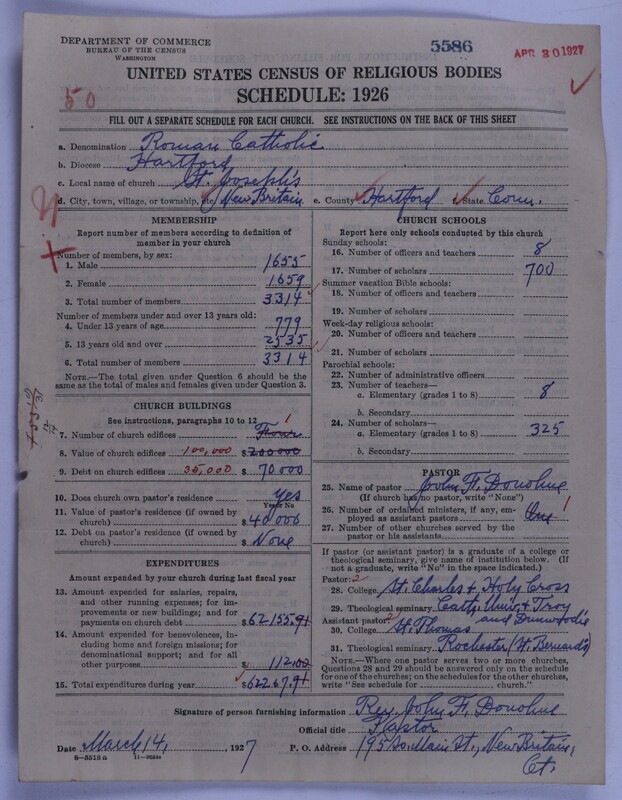 DEPARTMENT OF COMMERCE
BUREAU OF THE CENSUS
WASHINGTON
5586
APR 30 1927
UNITED STATES CENSUS OF RELIGIOUS BODIES
SCHEDULE: 1926
50
FILL OUT A SEPARATE SCHEDULE FOR EACH CHURCH. SEE INSTRUCTIONS ON THE BACK OF THIS SHEET
a. Denomination Roman Catholic
b. Diocese Hartford
c. Local name of church St. Joseph's
d. City, town, village, or township, etc. New Britain e. County Hartford f. State Conn.
MEMBERSHIP
Report number of members according to definition of
member in your church
Number of members, by sex:
1. Male 1655
2. Female 1659
3. Total number of members 3314
Number of members under and over 13 years old:
4. Under 13 years of age 779
5. 13 years old and over 2535
6. Total number of members 3314
NOTE.—The total given under Question 6 should be the
same as the total of males and females given under Question 3.
CHURCH BUILDINGS
See instructions, paragraphs 10 to 12
7. Number of church edifices Four 1
8. Value of church edifices 100,000 $200000
9. Debt on church edifices 35,000 $70000
10. Does church own pastor's residence Yes
Yes or No
11. Value of pastor's residence (if owned by
church) $40000
12. Debt on pastor's residence (if owned by
church) $None
EXPENDITURES
Amount expended by your church during last fiscal year
13. Amount expended for salaries, repairs,
and other running expenses; for im-
provements or new buildings; and for
payments on church debt $62155.91
14. Amount expended for benevolences, in-
cluding home and foreign missions; for
denominational support; and for all
other purposes $112.00
15. Total expenditures during year $62267.91
CHURCH SCHOOLS
Report here only schools conducted by this church
Sunday schools:
16. Number of officers and teachers 8
17. Number of scholars 700
Summer vacation Bible schools:
18. Number of officers and teachers
19. Number of scholars
Week-day religious schools:
20. Number of officers and teachers
21. Number of scholars
Parochial schools:
22. Number of administrative officers
23. Number of teachers—
a. Elementary (grades 1 to 8) 8
b. Secondary
24. Number of scholars—
a. Elementary (grades 1 to 8) 325
b. Secondary
PASTOR
25. Name of pastor John F. Donohue
(If church has no pastor, write "None")
26. Number of ordained ministers, if any, em-
ployed as assistant pastors One 1
27. Number of other churches served by the
pastor or his assistants
If pastor (or assistant pastor) is a graduate of a college or
theological seminary, give name of institution below. (If
not a graduate, write "No" in the space indicated.)
Pastor: 2
28. College St. Charles & Holy Cross
29. Theological seminary Cath. Univ. & Troy
and Dunwoodie
Assistant pastor: 2
30. College St Thomas
31. Theological seminary Rochester (St. Bernard's)
NOTE.—Where one pastor serves two or more churches,
Questions 28 and 29 should be answered only on the schedule
for one of the churches; on the schedules for the other churches,
write "See schedule for church."
Signature of person furnishing information Rev. John F. Donohue
Official title Pastor
Date March 14, 1927 P. O. Address 195 So. Main St., New Britain,
Ct.
8-5518a 11-9035a